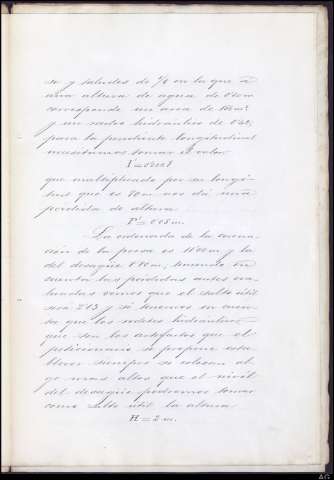 so y taludes de 1/1 en la que á
una altura de agua de
corresponde un area de
y un radio hidraulico de
para la pendiente longitudinal
necesitamos tomar el valor
I =
que multiplicado por su longi-
tud que es 70 m nos dá una
perdida de altura
P' = 0'05 m.
La ordenada de la corona-
ción de la presa es 11'00 m y la
del desagüe m, teniendo en
cuenta las perdidas antes ca-
culadas vemos que el salto util
será 2'13 y si tenemos en cuen-
ta que los motores hidraulicos
que son los artefactos que el
peticionario se propone esta-
blecer siempre se colocan al-
go mas altos que el nivel
del desagüe podremos tomar
como salto util la altura
H = 2 m.
AG